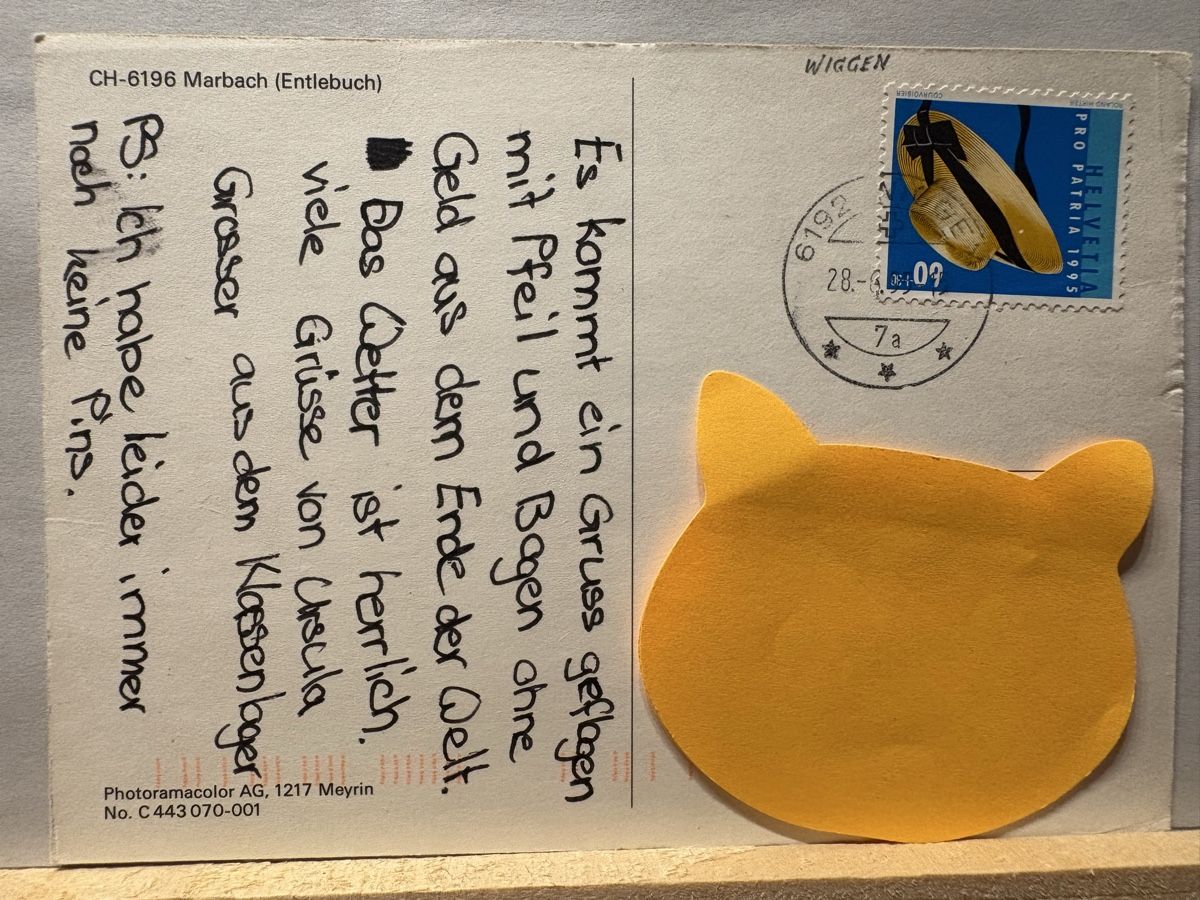 CH-6196 Marbach (Entlebuch)
Es kommt ein Gruss geflogen
mit Pfeil und Bogen ohne
Geld aus dem Ende der Welt.
Das Wetter ist herrlich.
viele Grüsse von Ursula
Grosser aus dem Klassenlager
PS: Ich habe leider immer
noch keine Pins.
Photoramacolor AG, 1217 Meyrin
No. C 443 070-001
WIGGEN
COURVOISIER
ROLAND HIRTER
HELVETIA
PRO PATRIA 1995
60+30
6192
28.-6.
7a